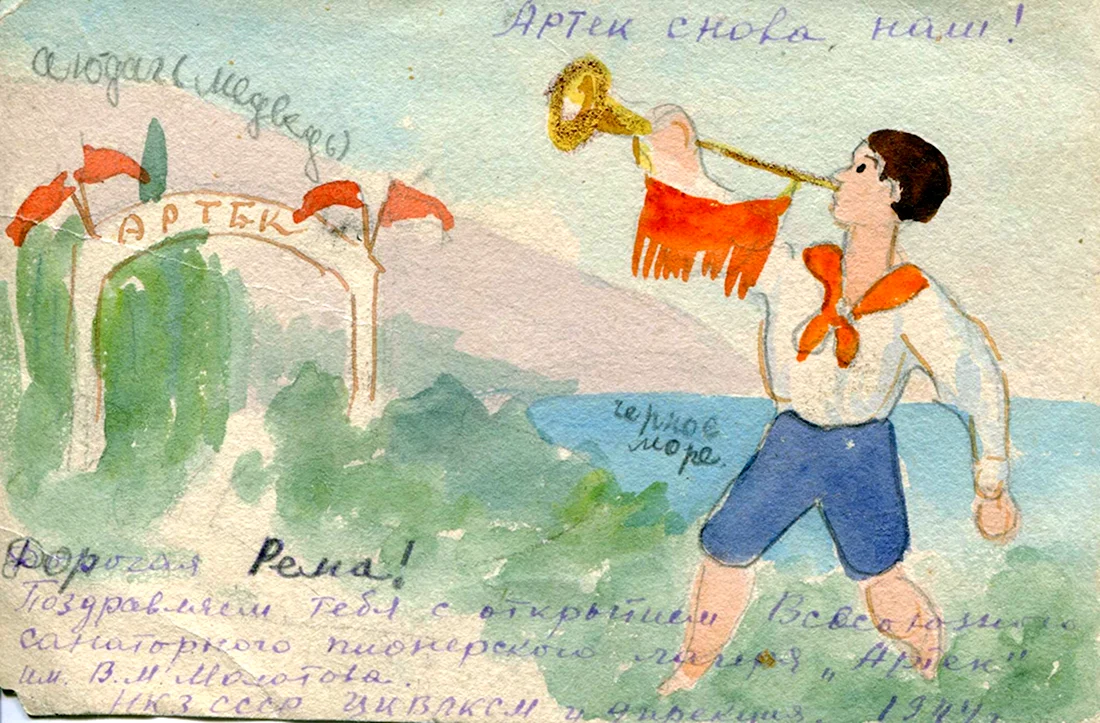 Артек снова наш!
аюдагь (медведь)
АРТЕК
черное
море.
Дорогая Рема!
Поздравляем тебя с открытием Всесоюзного
санаторного пионерского лагеря „Артек"
им. В. М. Молотова.
НКЗ СССР ЦКВЛКСМ и дирекция. 1944г.